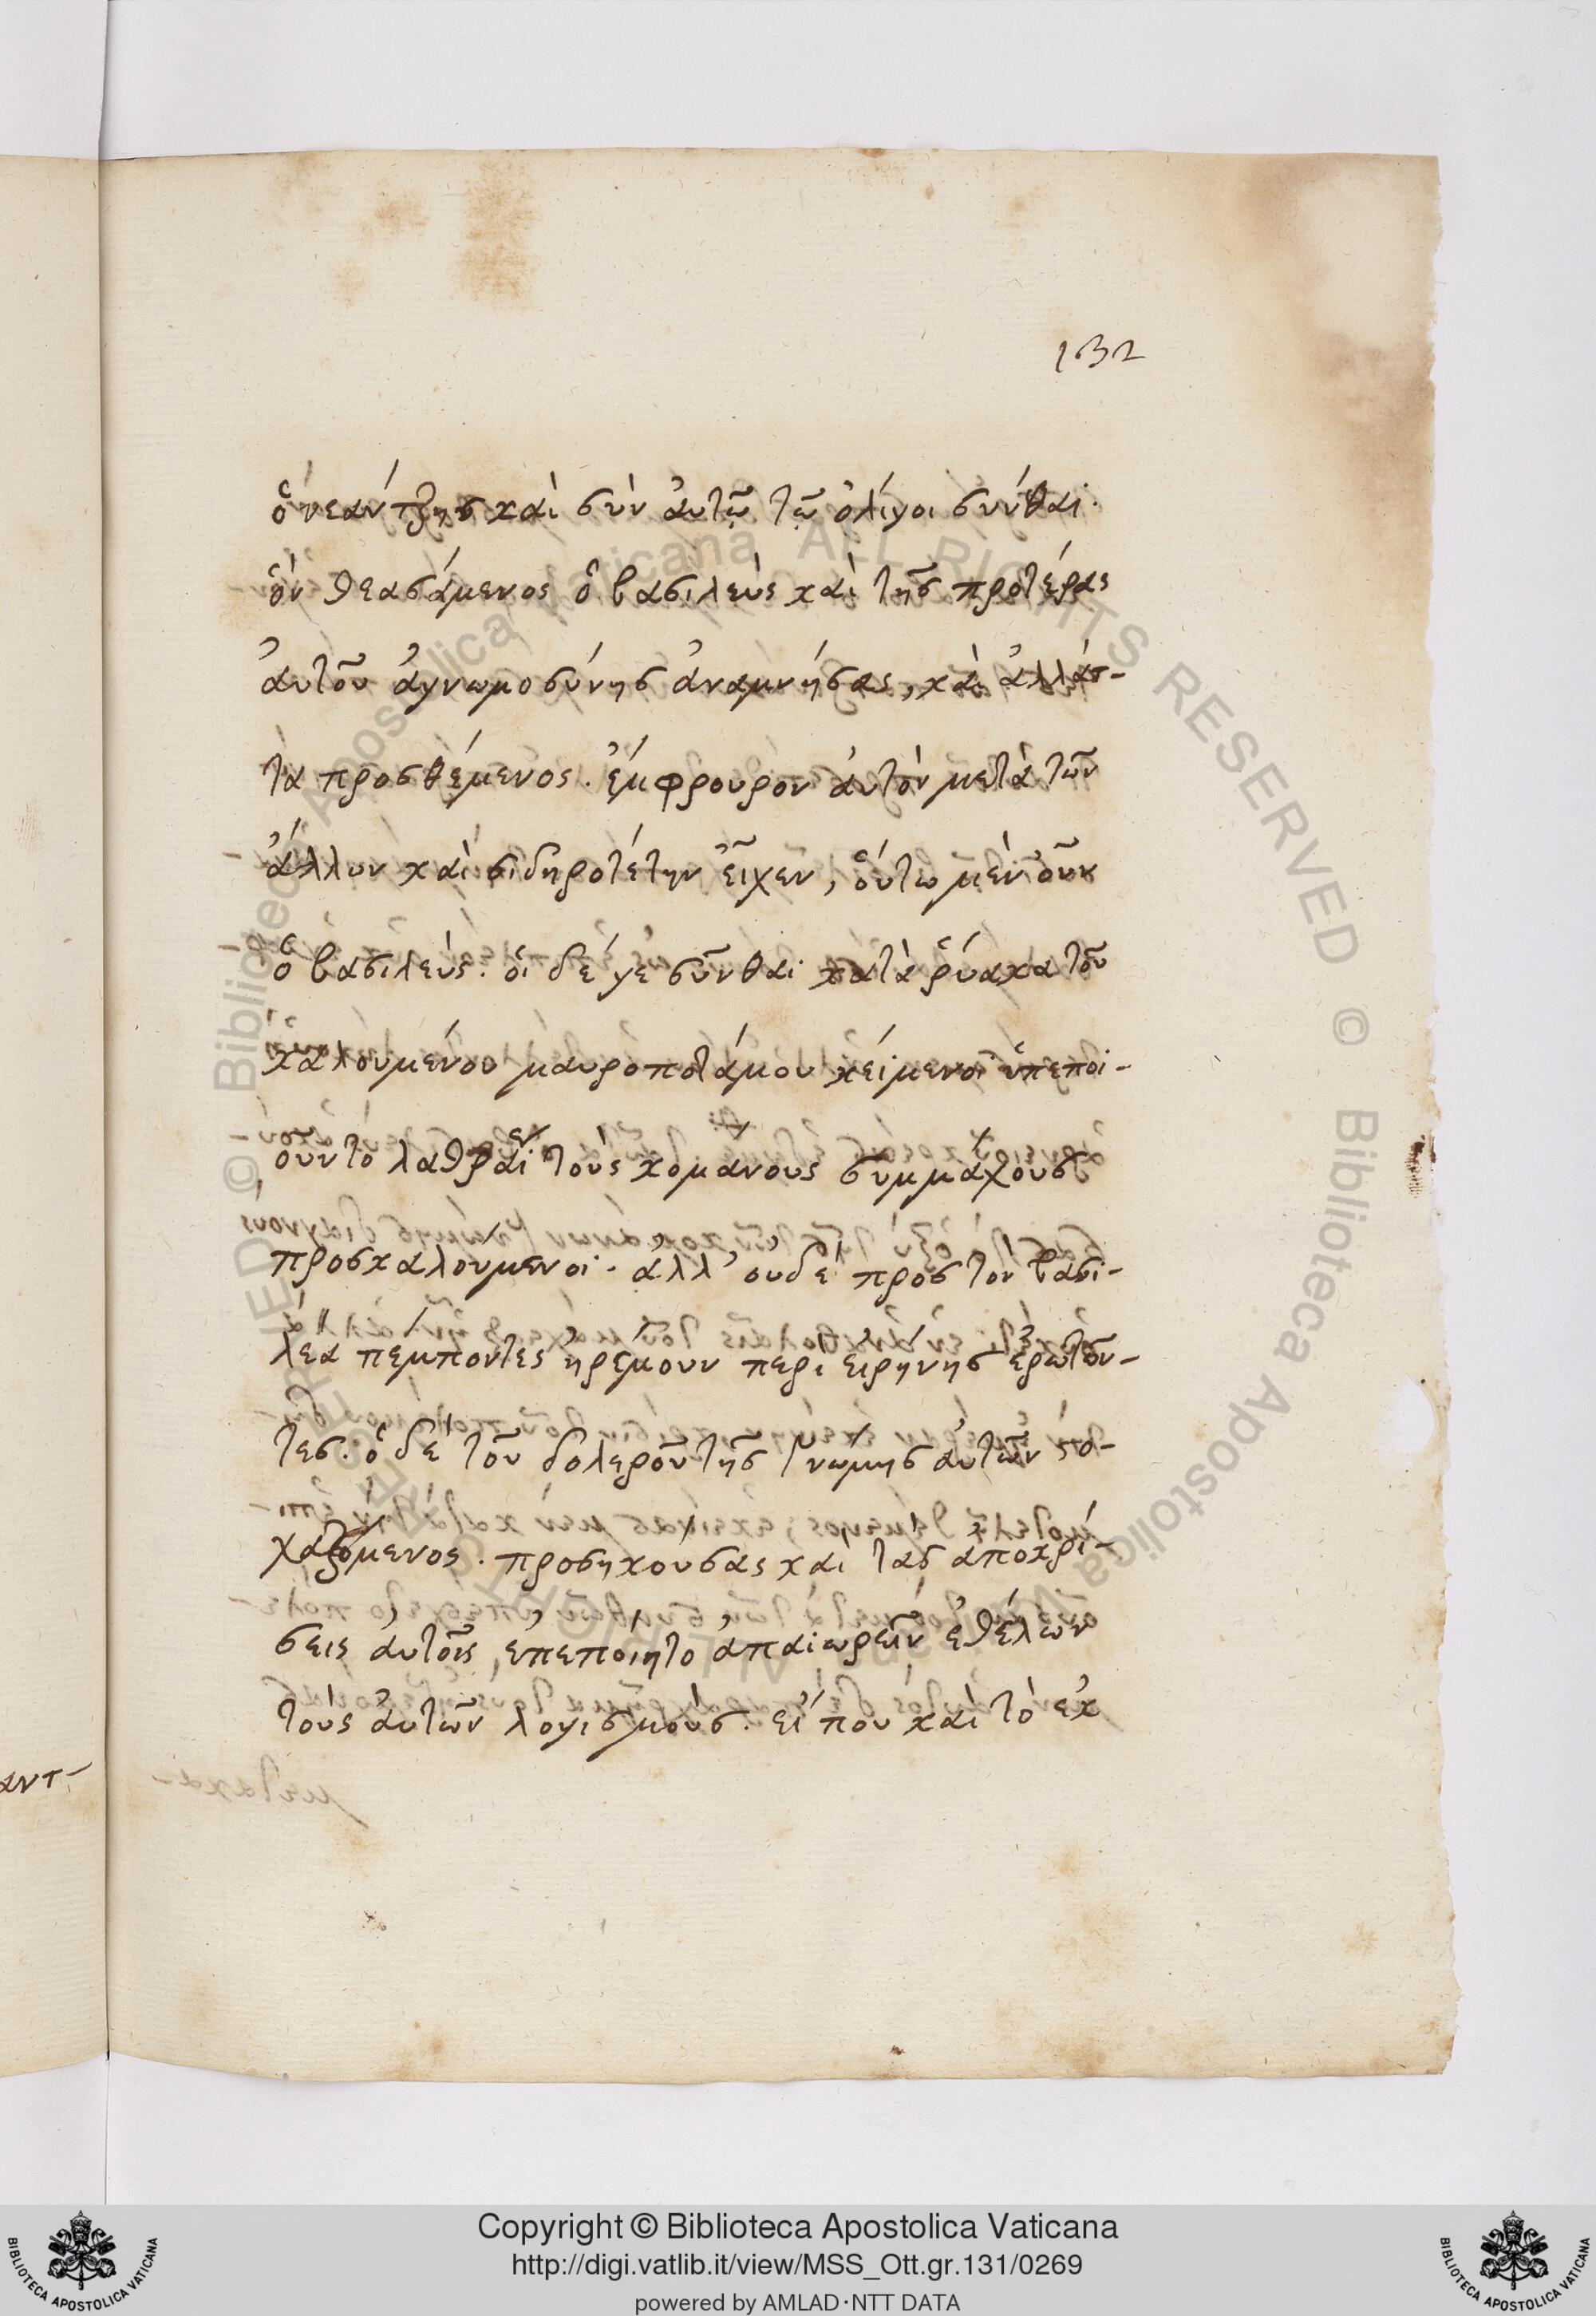 132
ὁ νεάντζης καὶ σὺν ἀυτῶ τῶ ὀλίγοι σύνθαι·
ὃν θεασάμενος ὁ βασιλεὺς καὶ τῆς προτέρας
ἀυτοῦ ἀγνωμοσύνης ἀναμνήσας, καὶ ἀλλάσ-
τα προσθέμενος. ἔμφρουρον ἀυτὸν μετὰ τῶν
ἄλλων καὶ σιδηροτέτην εἶχεν, οὕτω μὲν οὖν
ὁ βασιλεύς. οἱ δέ γε σύνθαι κατὰ ῥύακα τοῦ
καλουμένου μαυροποτάμου κείμενοι ὑπεποι-
οῦντο λαθραί τοὺς κομάνους συμμάχους
προσκαλούμενοι. ἀλλ' ουδὲ πρὸς τὸν βασι-
λέα πέμποντες ἠρέμουν περὶ ειρήνης ἐρωτῶν-
τες. ὁ δὲ τοῦ δολεροῦ τῆς γνώμης ἀυτῶν στο-
χαζόμενος. προσηκούσας καὶ τὰς ἀποκρί-
σεις ἀυτοῖς, ἐπεποίητο ἀπαιωρεῖν ἐθέλων
τοὺς ἀυτῶν λογισμούς. εἴ που καὶ τὸ ἐκ
αντ-
Copyright © Biblioteca Apostolica Vaticana
http://digi.vatlib.it/view/MSS_Ott.gr.131/0269
powered by AMLAD·NTT DATA
BIBLIOTECA APOSTOLICA VATICANA
BIBLIOTECA APOSTOLICA VATICANA
© Biblioteca Apostolica Vaticana ALL RIGHTS RESERVED © Biblioteca Apostolica Vaticana ALL RIGHTS RESERVED